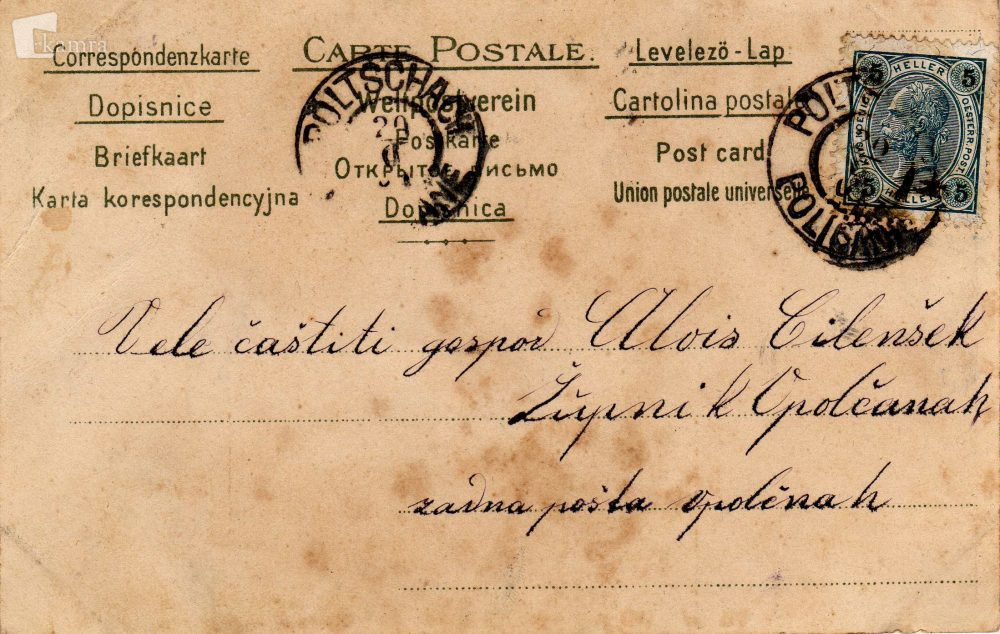 kamra
Correspondenzkarte
Dopisnice
Briefkaart
Karta korespondencyjna
CARTE POSTALE.
Weltpostverein
Postkarte
Открытое письмо
Dopisnica
Levelező-Lap
Cartolina postale
Post card
Union postale universelle
POLTSCHACH
20
POLTS
POLIČANE
5 HELLER 5
OESTERR. POST
5 HELLER 5
Vele častiti gospod Alois Cilenšek
Župnik Vpolčanah
zadna pošta vpolčnah